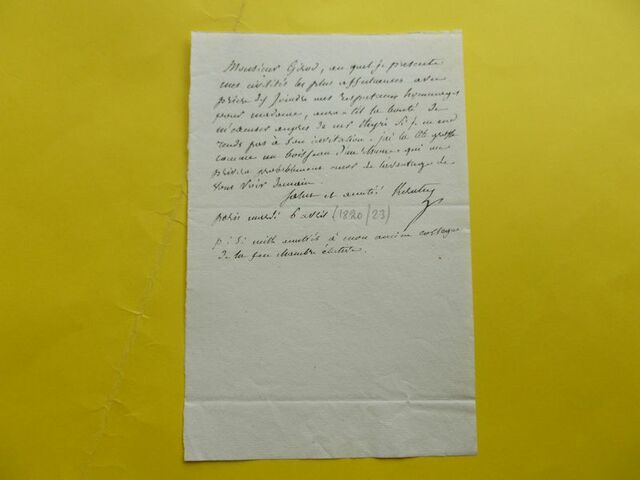 Monsieur Gérard, au quel je presente
mes civilités les plus affectueuses avec
prière d'y joindre mes respectueux hommages
pour madame, aura-t-il la bonté de
m'excuser aupres de mr Si je me
rends pas à son invitation. j'ai la tête grosse
comme un boisseau d'un rhume qui me
privera probablement de l'avantage de
vous voir demain.
Salut et amitié
paris mardi 6 avril (1820/23)
p: S: mille amitiés à mon ancien collegue
de la feu chambre